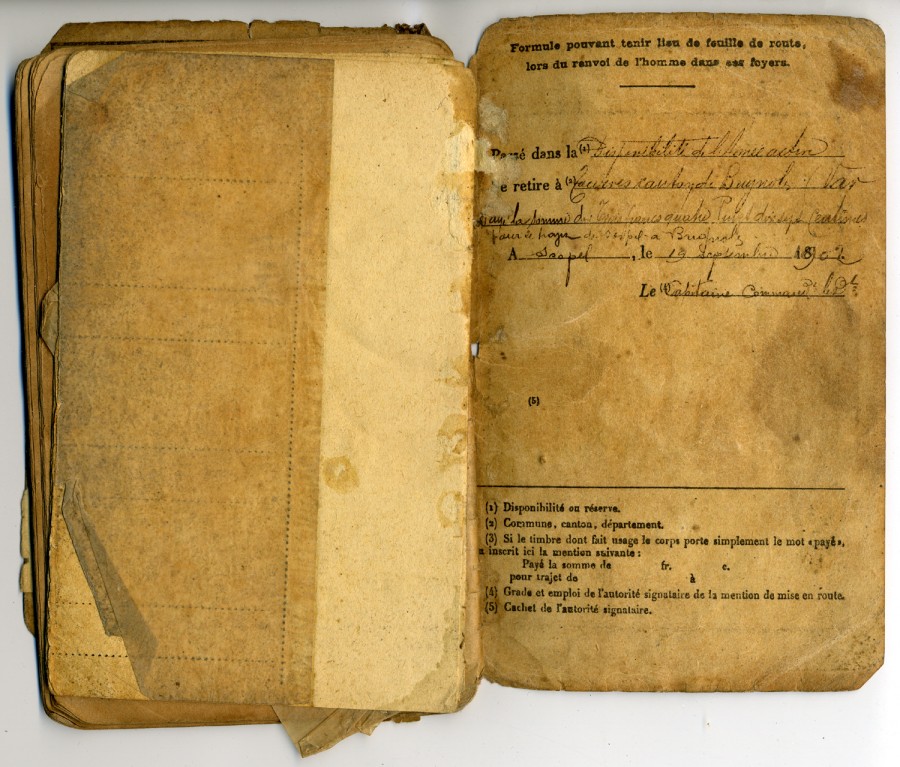 Formule pouvant tenir lieu de feuille de route,
lors du renvoi de l'homme dans ses foyers.
Passé dans la (1) Disponibilité de l'Armée active
Se retire à (2) canton de Brignoles Var
la somme de Trois francs quatre Vingt dix sept Centimes
pour le trajet de Sospel à Brignoles
A Sospel, le 19 Septembre 1902
Le (4) Capitaine Command
(5)
(1) Disponibilité ou réserve.
(2) Commune, canton, département.
(3) Si le timbre dont fait usage le corps porte simplement le mot «payé»,
inscrit ici la mention suivante :
Payé la somme de fr. c.
pour trajet de à
(4) Grade et emploi de l'autorité signataire de la mention de mise en route.
(5) Cachet de l'autorité signataire.